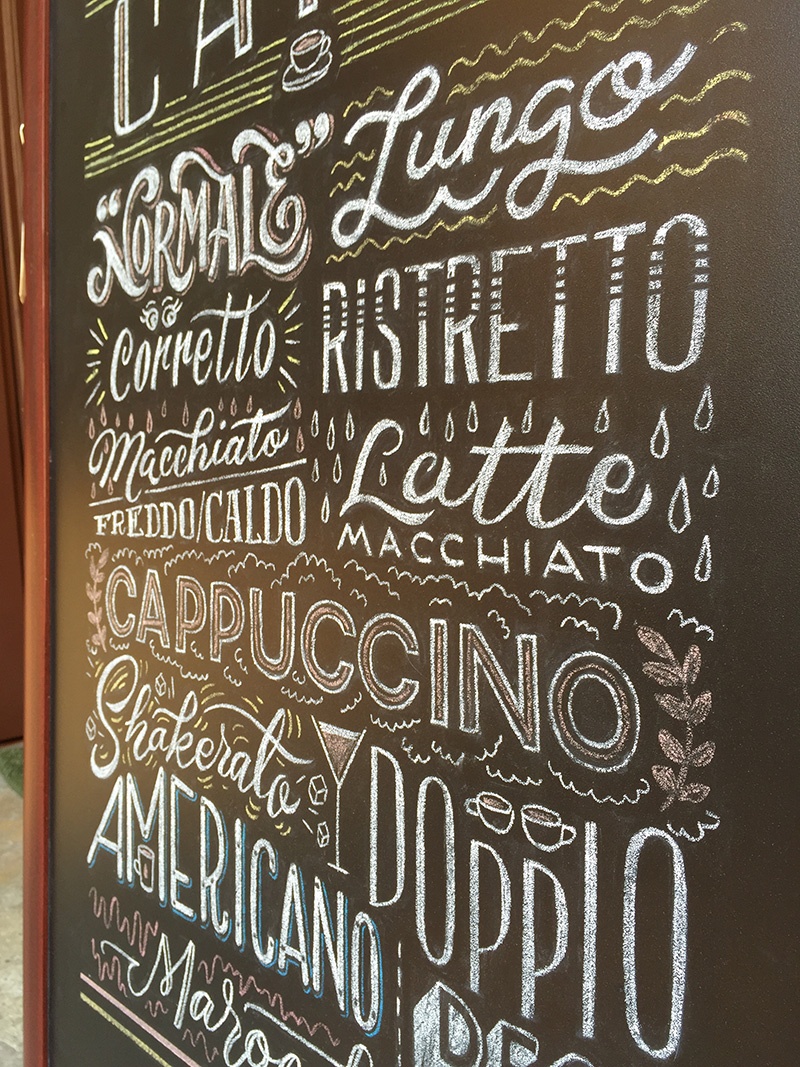 “NORMALE”
Lungo
Corretto
RISTRETTO
Macchiato
FREDDO/CALDO
Latte
MACCHIATO
CAPPUCCINO
Shakerato
AMERICANO
DOPPIO